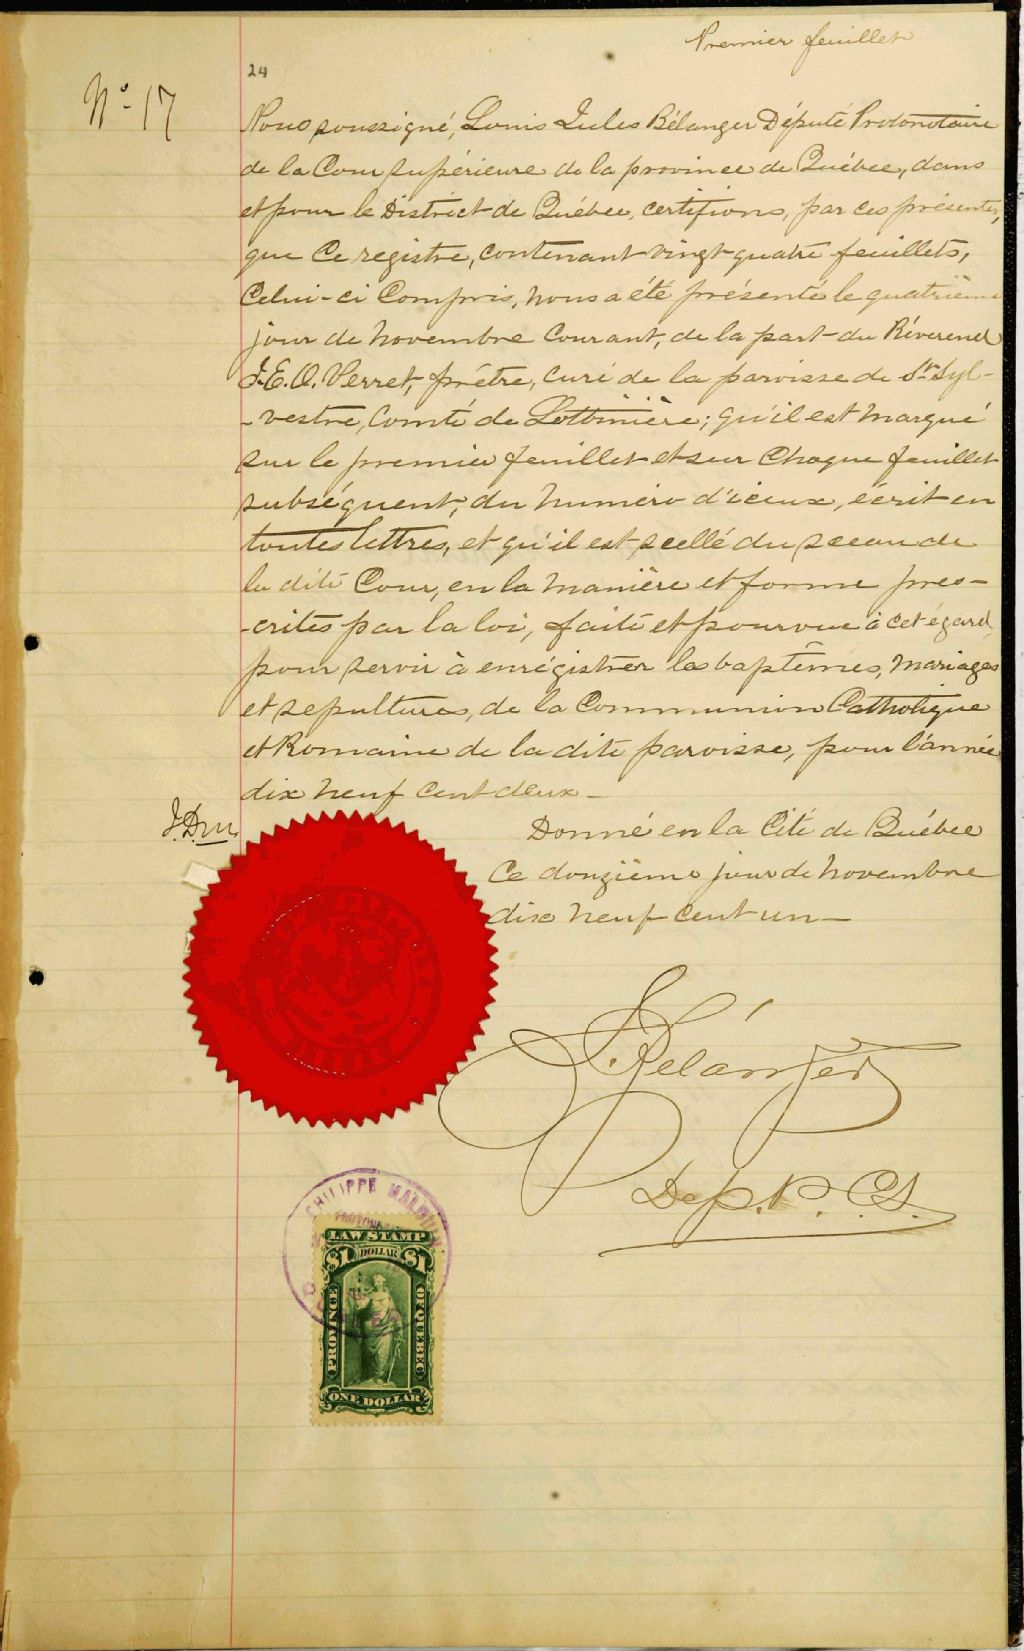 Premier feuillet
24
No 17
Nous soussigné, Louis Jules Bélanger Député Protonotaire
de la Cour supérieure de la province de Québec, dans
et pour le District de Québec, certifions, par ces présentes,
que Ce registre, contenant vingt-quatre feuillets,
Celui-ci Compris, nous a été présenté le quatrième
jour de novembre Courant, de la part du Révérend
J.E.O. Verret, prêtre, curé de la paroisse de St. Syl-
-vestre, Comté de Lotbinière; qu'il est marqué
sur le premier feuillet et sur Chaque feuillet
subséquent, du numéro d'iceux, écrit en
toutes lettres, et qu'il est scellé du sceau de
la dite Cour, en la manière et forme pres-
-crites par la loi, faite et pourvue à cet égard,
pour servir à enrégistrer les baptêmes, mariages
et sepultures, de la Communion Catholique
et Romaine de la dite paroisse, pour l'année
dix neuf cent deux_
Donné en la Cité de Québec
Ce douzième jour de novembre
dix neuf cent un_
Bélanger
Dep. P. C.S.
PHILIPPE MALOUIN
LAW STAMP
$1 DOLLAR $1
PROVINCE OF QUEBEC
ONE DOLLAR